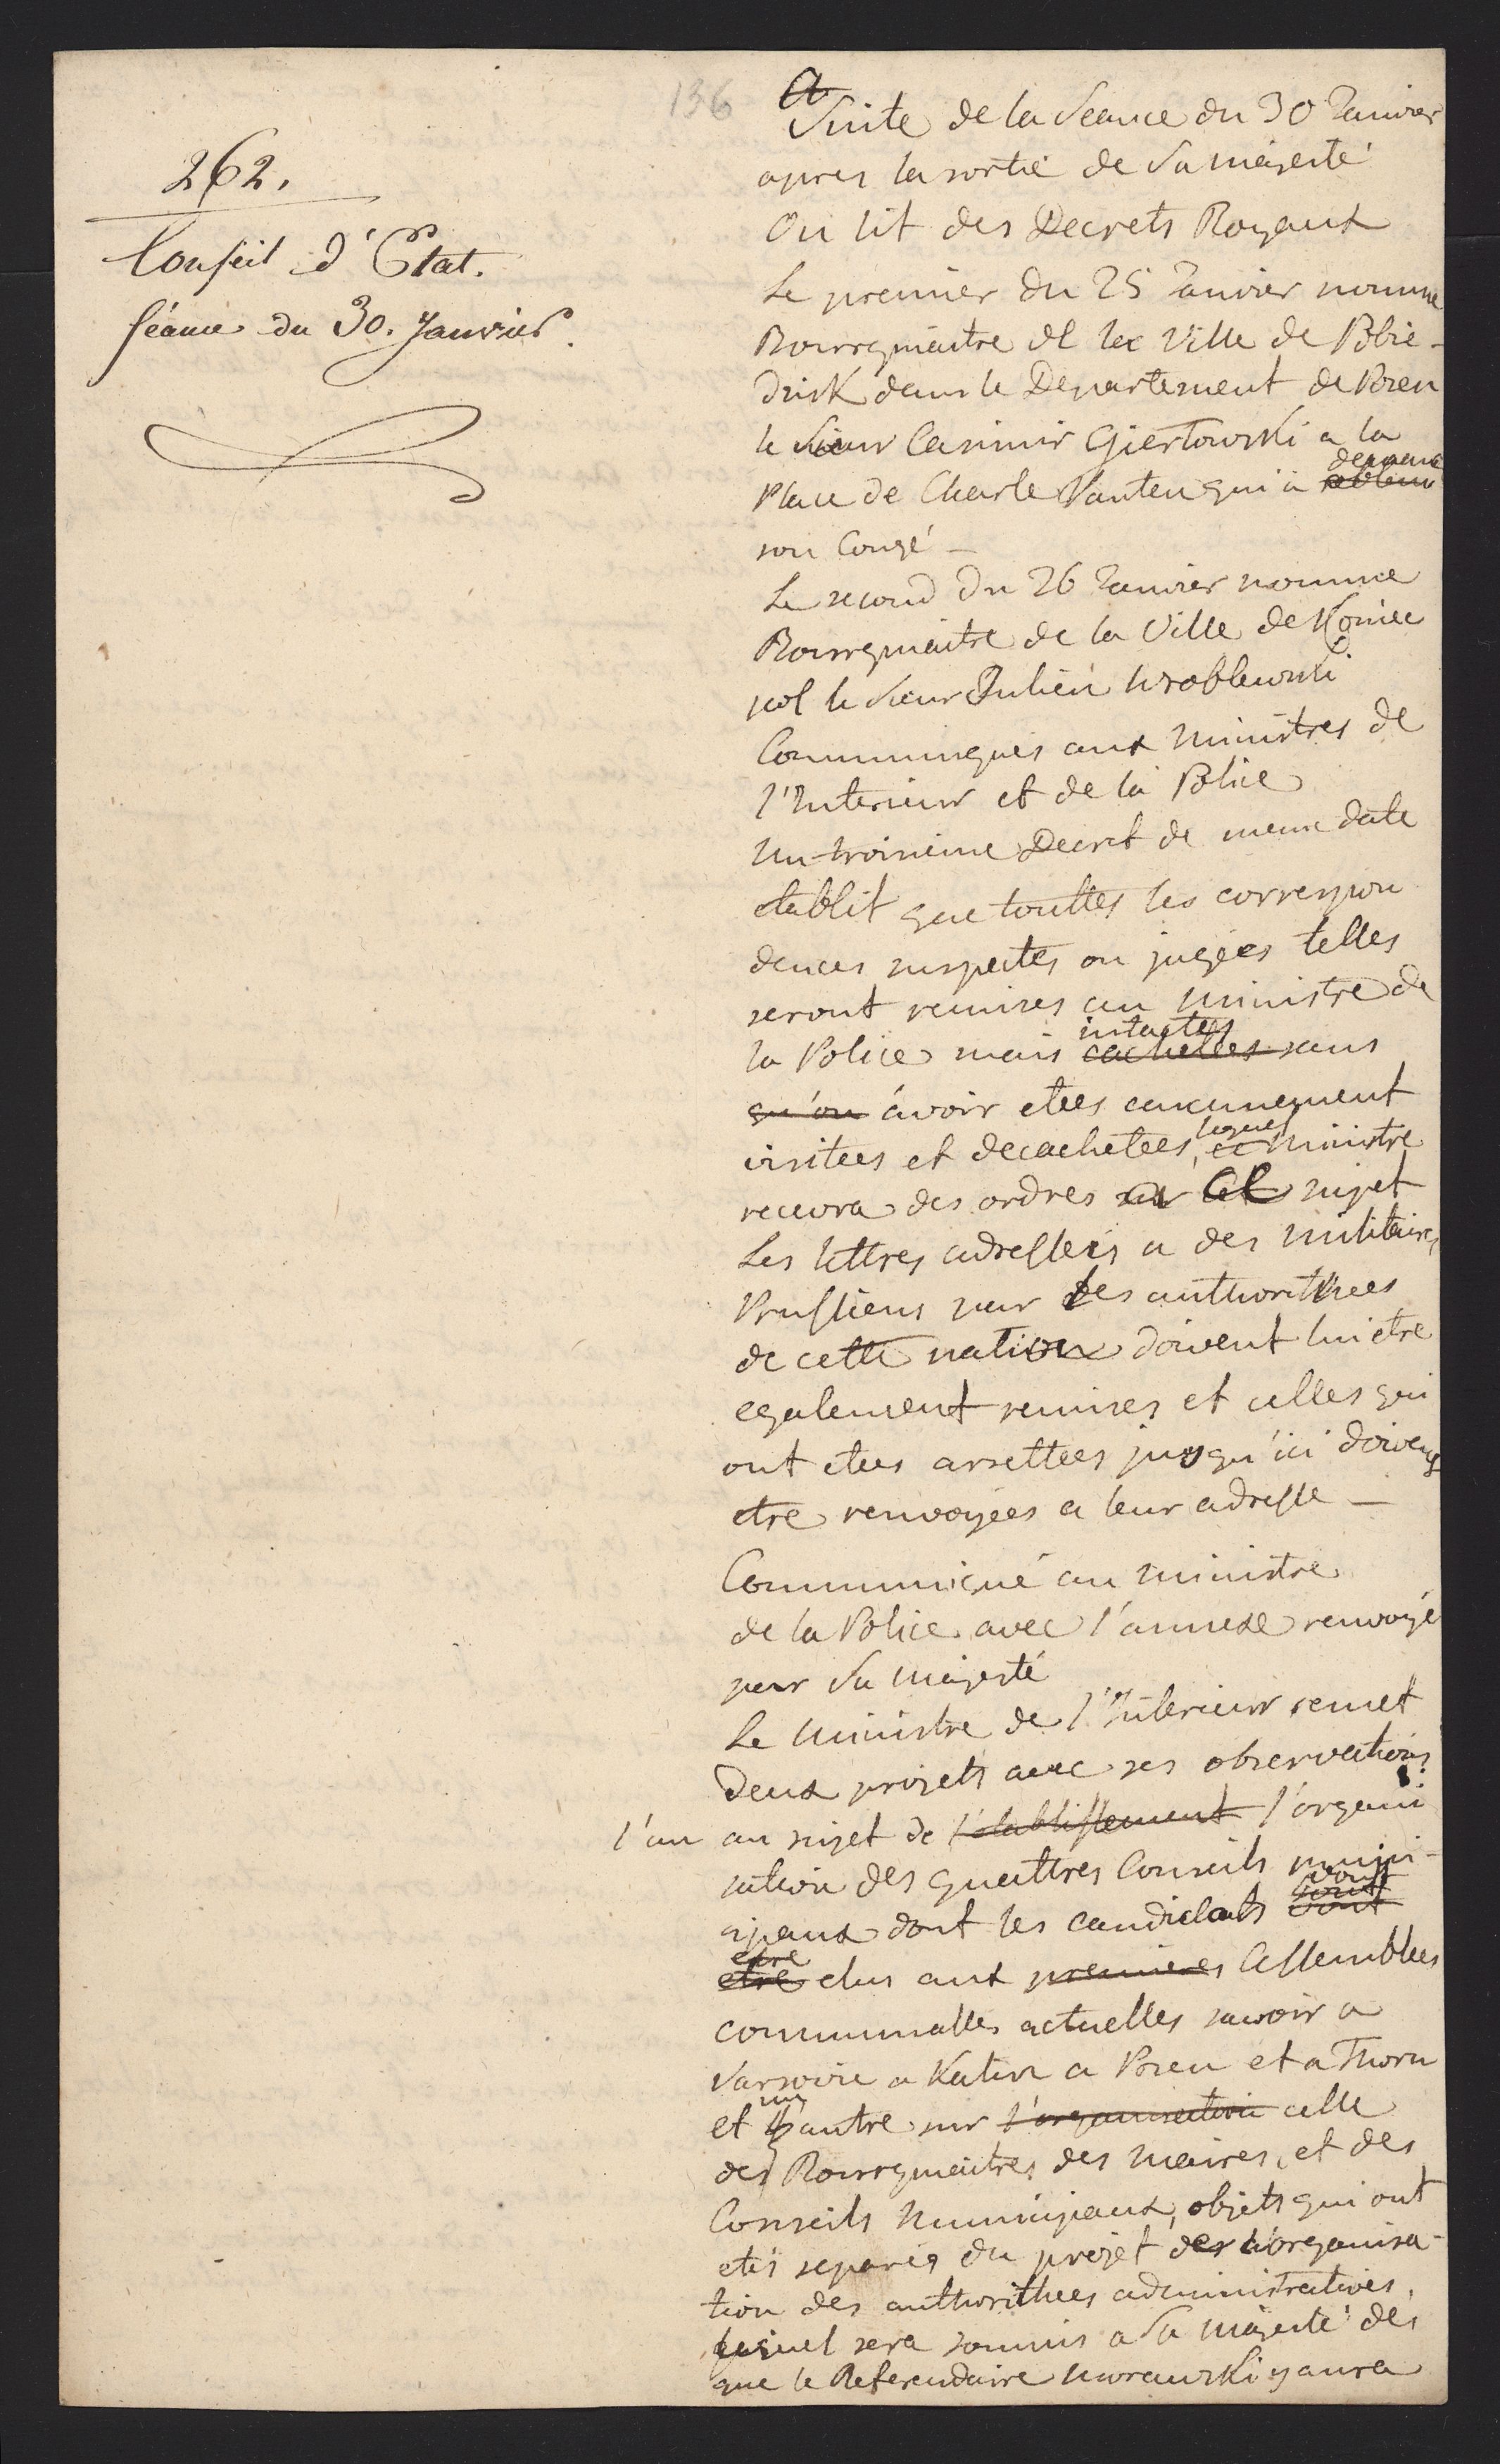 136
262.
Conseil d'Etat.
séance du 30. Janvier.
a
Suite de la Seance du 30 Janvier
apres la sortie de Sa majesté
On lit des Decrets Royaux
Le premier du 25 Janvier nomme
Bourgmaitre de la Ville de Pobie-
drisk dans le Departement de Posen
le Sieur Casimir Giertowski a la
demandé
Place de Charle Vanten qui a obtenu
son Congé –
Le second du 26 Janvier nomme
Bourgmaitre de la Ville de Koniec
pol le Sieur Julien Wroblewski
Communiqués aux Ministres de
l'Interieur et de la Police
Un troisieme Decret de meme date
etablit que touttes les correspon
dences suspectes ou jugées telles
seront remises au Ministre de
intactes
la Police mais cachettes sans
qu'on avoir etees aucunement
lequel
visitees et decachetees, ce Ministre
recevra des ordres sur cet sujet
Les lettres adressées a des Militaires
Prussiens par des authorithees
de cette nation doivent lui etre
egalement remises et celles qui
ont etees arrettees jusqu'ici doivent
etre renvoyées a leur adresse –
Communiqué au Ministre
de la Police avec l'annexe renvoyé
par Sa Majesté
Le Ministre de l'Interieur remet
Deux projets avec ses observations
l'un au sujet de l'etablissement l'organi
sation des quattres Conseils muni-
vont
cipaux dont les candidats sont
etre
etre elus aux premieres Assemblees
communalles actuelles savoir a
Varsovie a Kalisz a Posen et a Thorn
un
et l'autre sur l'organisation celle
des Bourgmaitres des Maires, et des
Conseils Municipaux, objets qui ont
etés separés du projet des l'organisa-
tion des authorithees administratives,
lequel sera soumis a Sa Majesté dés
que le Referendaire Morawski y aura